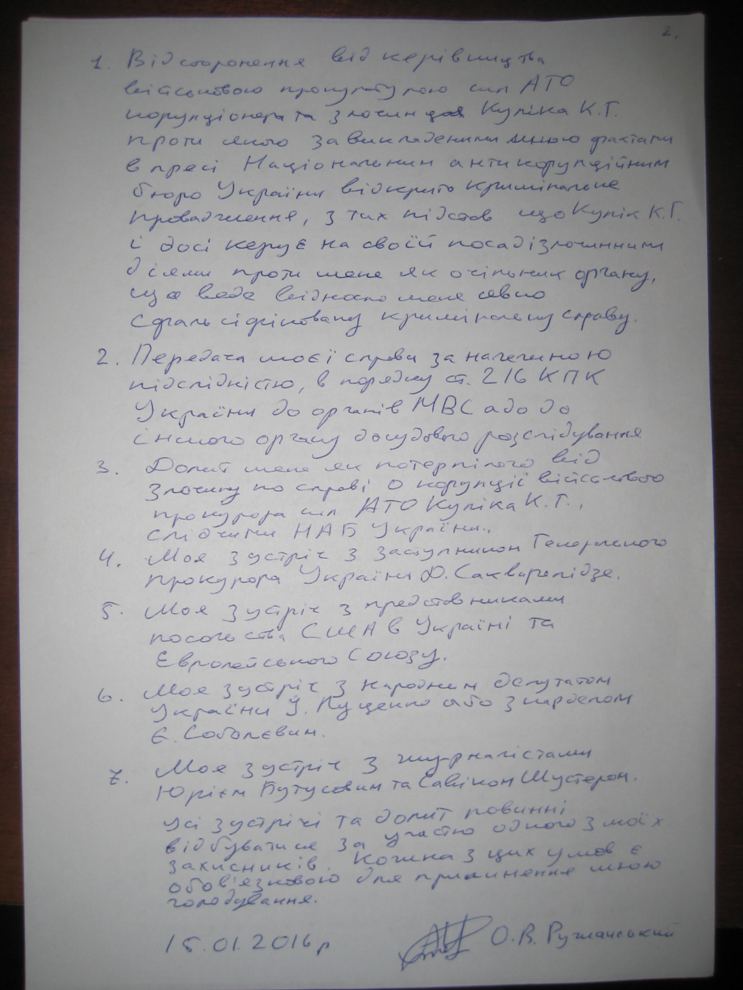 2.
1. Відсторонення від керівництва
військовою прокуратурою сил АТО
корупціонера та злочинця Куліка К.Г.
проти якого за викладеними мною фактами
в пресі Національним антикорупційним
бюро України відкрито кримінальне
провадження, з тих підстав що Кулік К.Г.
і досі керує на своїй посаді злочинними
діями проти мене як очільник органу,
що веде відносно мене явно
сфальсифіковану кримінальну справу.
2. Передача моєї справи за належною
підслідністю, в порядку ст. 216 КПК
України до органів МВС або до
іншого органу досудового розслідування
3. Допит мене як потерпілого від
злочину по справі о корупції військового
прокурора сил АТО Куліка К.Г.,
слідчими НАБ України.
4. Моя зустріч з заступником Генерального
прокурора України Д. Сакварелідзе.
5. Моя зустріч з представниками
посольства США в Україні та
Європейського Союзу.
6. Моя зустріч з народним депутатом
України І. Луценко або з нардепом
Є. Соболєвим.
7. Моя зустріч з журналістами
Юрієм Бутусовим та Савіком Шустером.
Усі зустрічі та допит повинні
відбуватися за участю одного з моїх
захисників. Кожна з цих умов є
обов'язковою для припинення мною
голодування.
15.01.2016р О.В. Ружанський